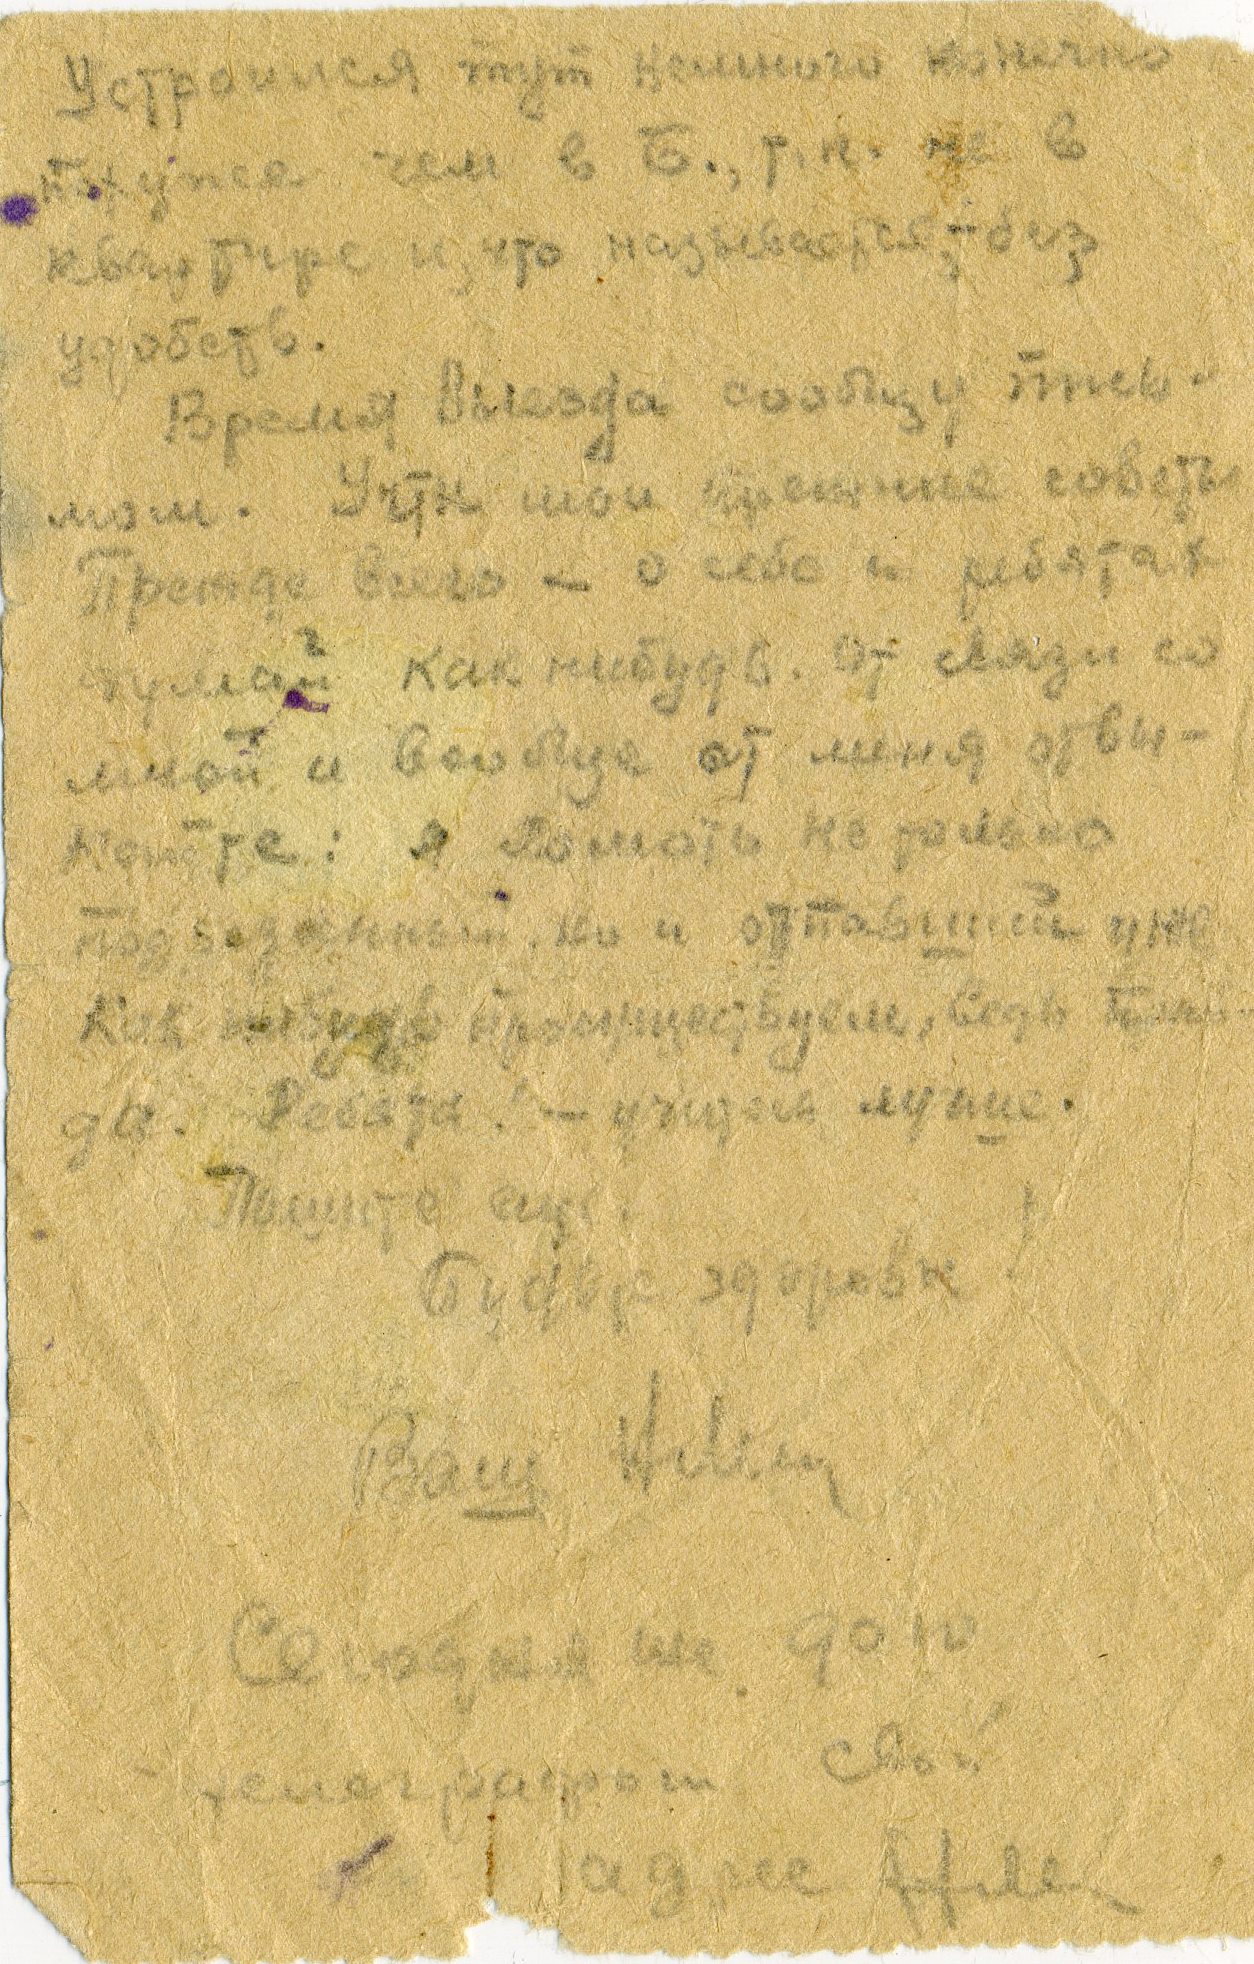 Устроился тут немного конечно
похуже чем в Б., т.к. не в
квартире и, что называется, - без
удобств.
Время выезда сообщу пись-
мом. Учти мои прежние советы
Прежде всего — о себе и ребятах
думай как нибудь. От связи со
мной и вообще от меня отвы-
кайте: я ломоть не только
подрезанный, но и отпавший уже
Как нибудь просуществуем, ведь
да. Ребята! — учиться лучше.
Пишите еще.
Будьте здоровы!
Ваш
Сегодня же дою
телеграфом свой
адрес